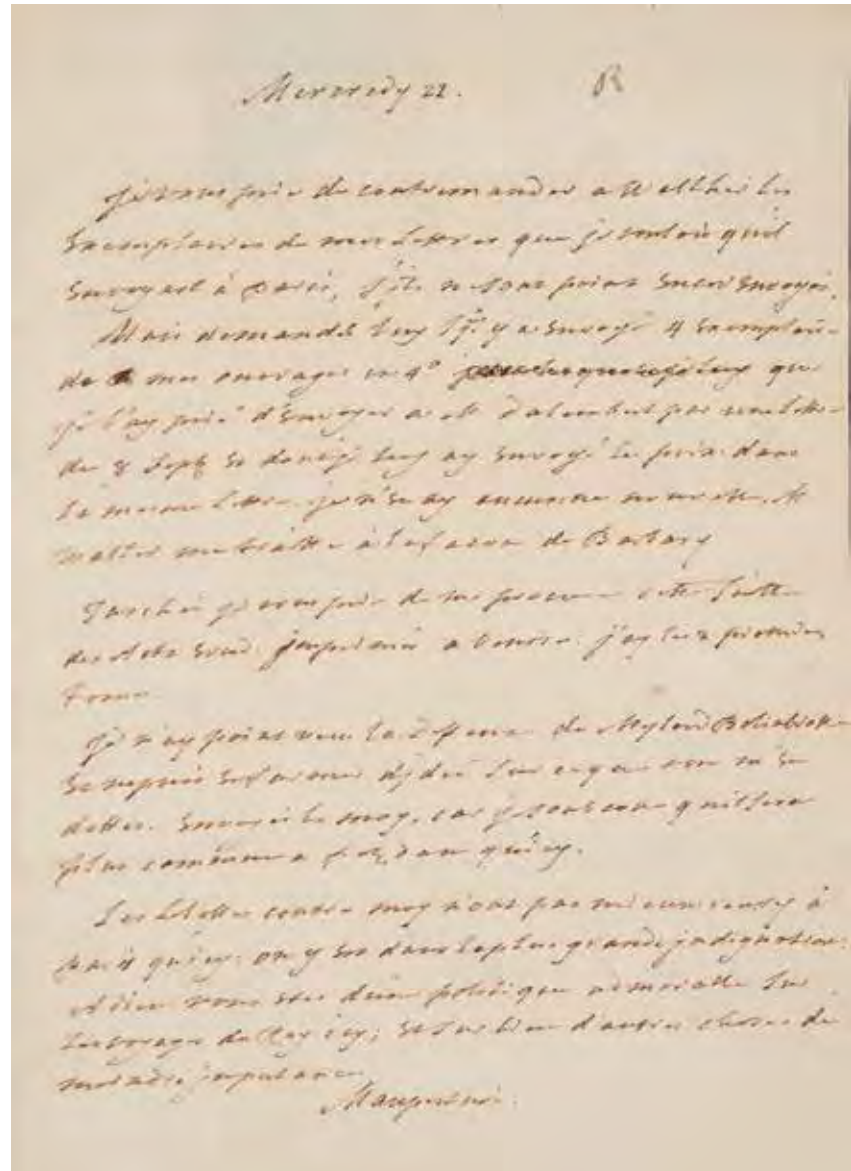 Mercredy 22. R
je vous prie de contremander a Walther les
Exemplaires de mes Lettres que je voulois quil
Envoyast à Paris, s'ils ne sont point Encor Envoyés.
Mais demandés luy s'il y a Envoyé 4 Exemplaires
de mes ouvrages in 4º que
je l'ay prié d'Envoyer a M d'alembert par une lettre
du 8 Sept. Et dont je luy ay Envoyé le prix dans
la meme Lettre. je n'En ay aucune nouvelle. M
Walter me traitte à la facon de Barbary
Tachés je vous prie de me procurer cette suitte
des Acta Erud. jmprimée a Venise. j'ay les 2 premiers
Tomes
je n'ay point veu la deffense de Mylord Bolinbrok
Et ne puis En former d'jdée sur ce que vous m'En
dittes. Envoyés la moy, car je
plus commune a dan quicy.
Les Libelles contre moy n'ont pas mieux reussy à
Paris quicy. on y Est dans la plus grande jndignation.
Adieu vous etes d'une politique admirable sur
Les voyages du Roy icy; Et sur bien d'autres choses de
moindre jmportance.
Maupertuis.